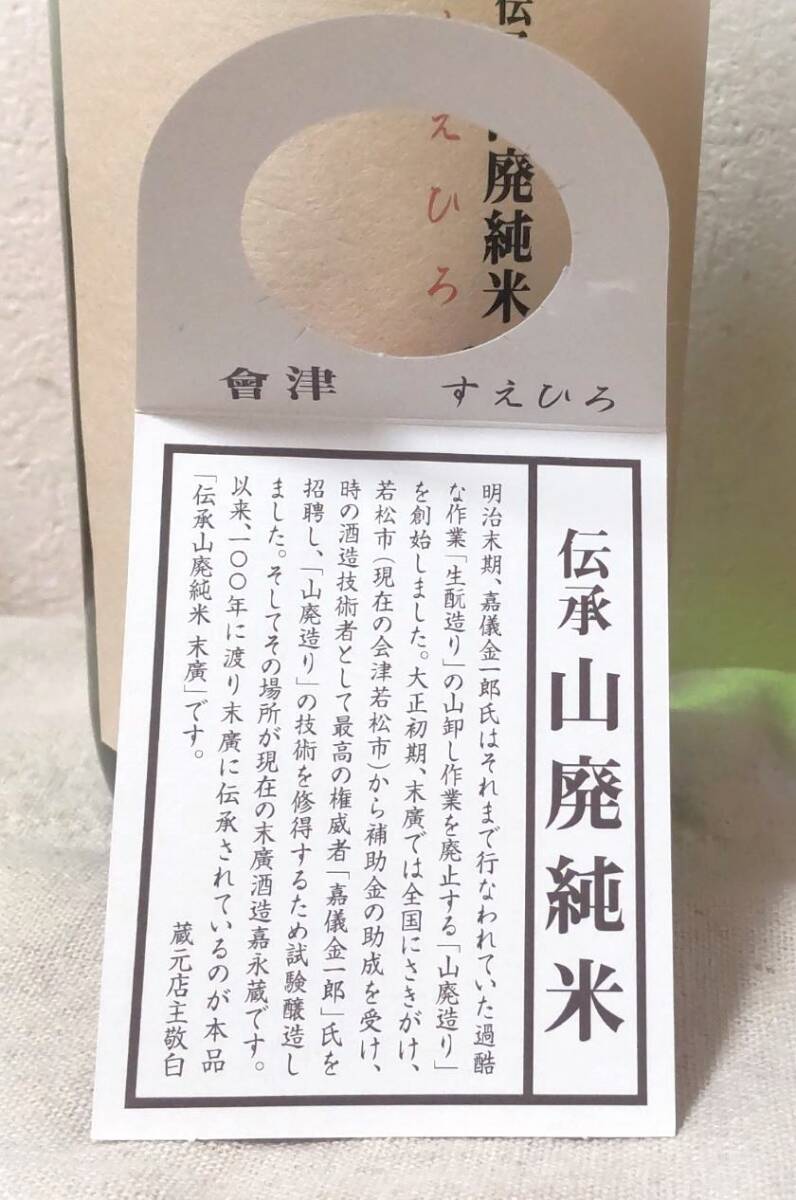 伝承山廃純米
えひろ
會津
すえひろ
伝承山廃純米
明治末期、嘉儀金一郎氏はそれまで行なわれていた過酷
な作業「生酛造り」の山卸し作業を廃止する「山廃造り」
を創始しました。大正初期、末廣では全国にさきがけ、
若松市(現在の会津若松市)から補助金の助成を受け、
時の酒造技術者として最高の権威者「嘉儀金一郎」氏を
招聘し、「山廃造り」の技術を修得するため試験醸造し
ました。そしてその場所が現在の末廣酒造嘉永蔵です。
以来、一〇〇年に渡り末廣に伝承されているのが本品
「伝承山廃純米 末廣」です。
蔵元店主敬白